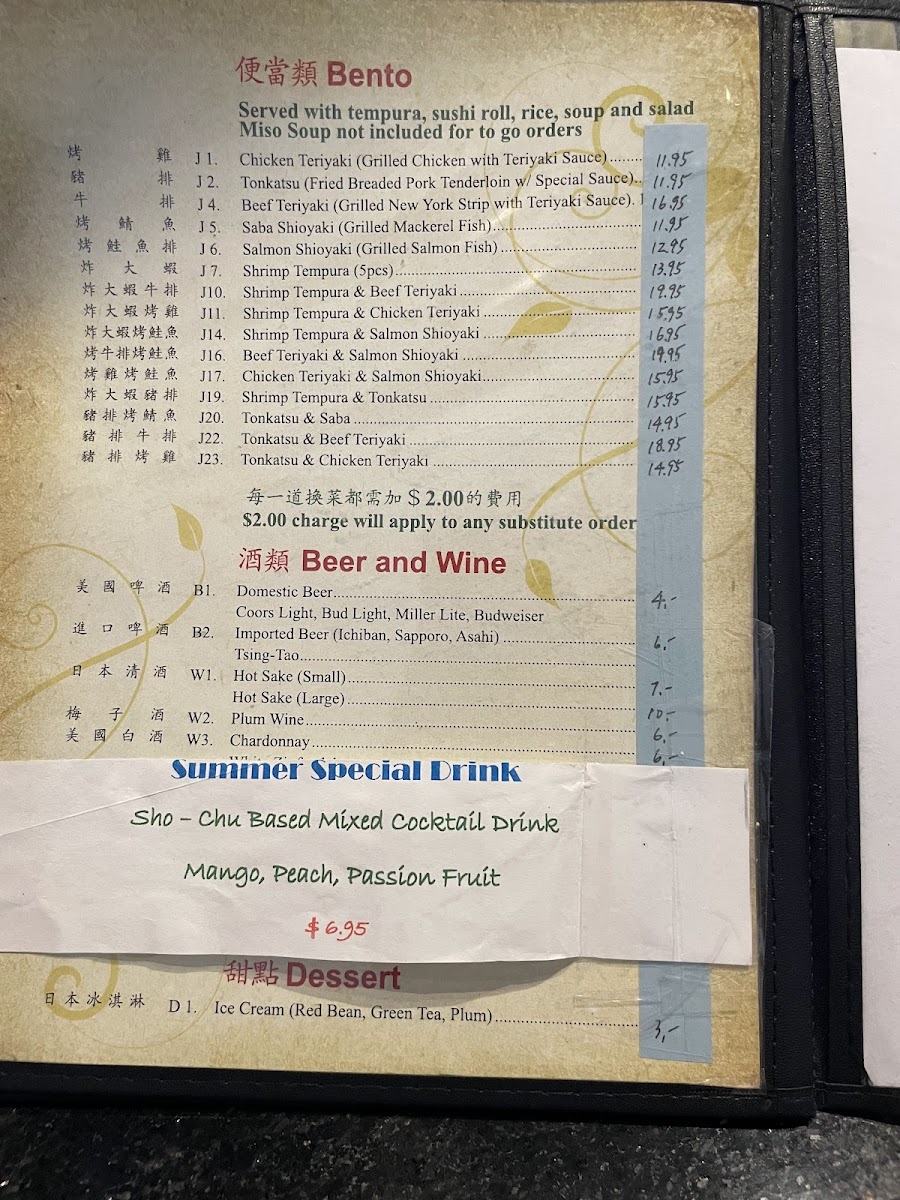 便當類 Bento
Served with tempura, sushi roll, rice, soup and salad
Miso Soup not included for to go orders
烤雞 J 1. Chicken Teriyaki (Grilled Chicken with Teriyaki Sauce)........ 11.95
豬排 J 2. Tonkatsu (Fried Breaded Pork Tenderloin w/ Special Sauce).. 11.95
牛排 J 4. Beef Teriyaki (Grilled New York Strip with Teriyaki Sauce). 16.95
烤鯖魚 J 5. Saba Shioyaki (Grilled Mackerel Fish)........ 11.95
烤鮭魚排 J 6. Salmon Shioyaki (Grilled Salmon Fish)........ 12.95
炸大蝦 J 7. Shrimp Tempura (5pcs)........ 13.95
炸大蝦牛排 J10. Shrimp Tempura & Beef Teriyaki........ 19.95
炸大蝦烤雞 J11. Shrimp Tempura & Chicken Teriyaki........ 15.95
炸大蝦烤鮭魚 J14. Shrimp Tempura & Salmon Shioyaki........ 16.95
烤牛排烤鮭魚 J16. Beef Teriyaki & Salmon Shioyaki........ 19.95
烤雞烤鮭魚 J17. Chicken Teriyaki & Salmon Shioyaki........ 15.95
炸大蝦豬排 J19. Shrimp Tempura & Tonkatsu........ 15.95
豬排烤鯖魚 J20. Tonkatsu & Saba........ 14.95
豬排牛排 J22. Tonkatsu & Beef Teriyaki........ 18.95
豬排烤雞 J23. Tonkatsu & Chicken Teriyaki........ 14.95
每一道換菜都需加＄2.00的費用
$2.00 charge will apply to any substitute order
酒類 Beer and Wine
美國啤酒 B1. Domestic Beer........ 4.-
Coors Light, Bud Light, Miller Lite, Budweiser
進口啤酒 B2. Imported Beer (Ichiban, Sapporo, Asahi)........ 6.-
Tsing-Tao........
日本清酒 W1. Hot Sake (Small)........ 7.-
Hot Sake (Large)........ 10.-
梅子酒 W2. Plum Wine........ 6.-
美國白酒 W3. Chardonnay........ 6.-
Summer Special Drink
Sho – Chu Based Mixed Cocktail Drink
Mango, Peach, Passion Fruit
$ 6.95
甜點 Dessert
日本冰淇淋 D 1. Ice Cream (Red Bean, Green Tea, Plum)........ 3.-